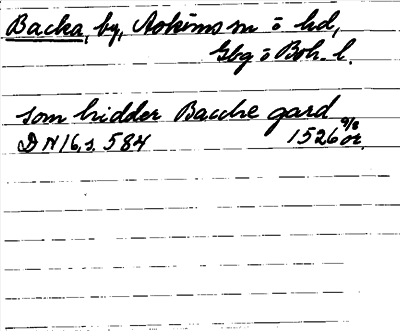 Backa, by, Askims sn o hd,
Gbg o Boh. l.
som hidder Bacche gard
DN 16, s. 584 1526 9/8 or.